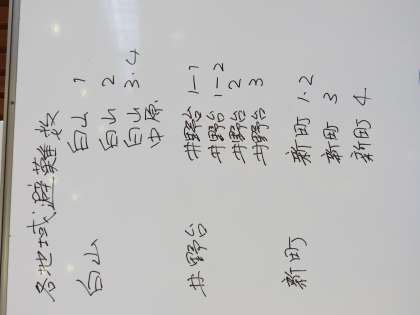 各地域避難数
白山 白山 1
白山 2
白山 3.4
中原
井野台 井野台 1-1
井野台 1-2
井野台 2
井野台 3
新町 新町 1.2
新町 3
新町 4